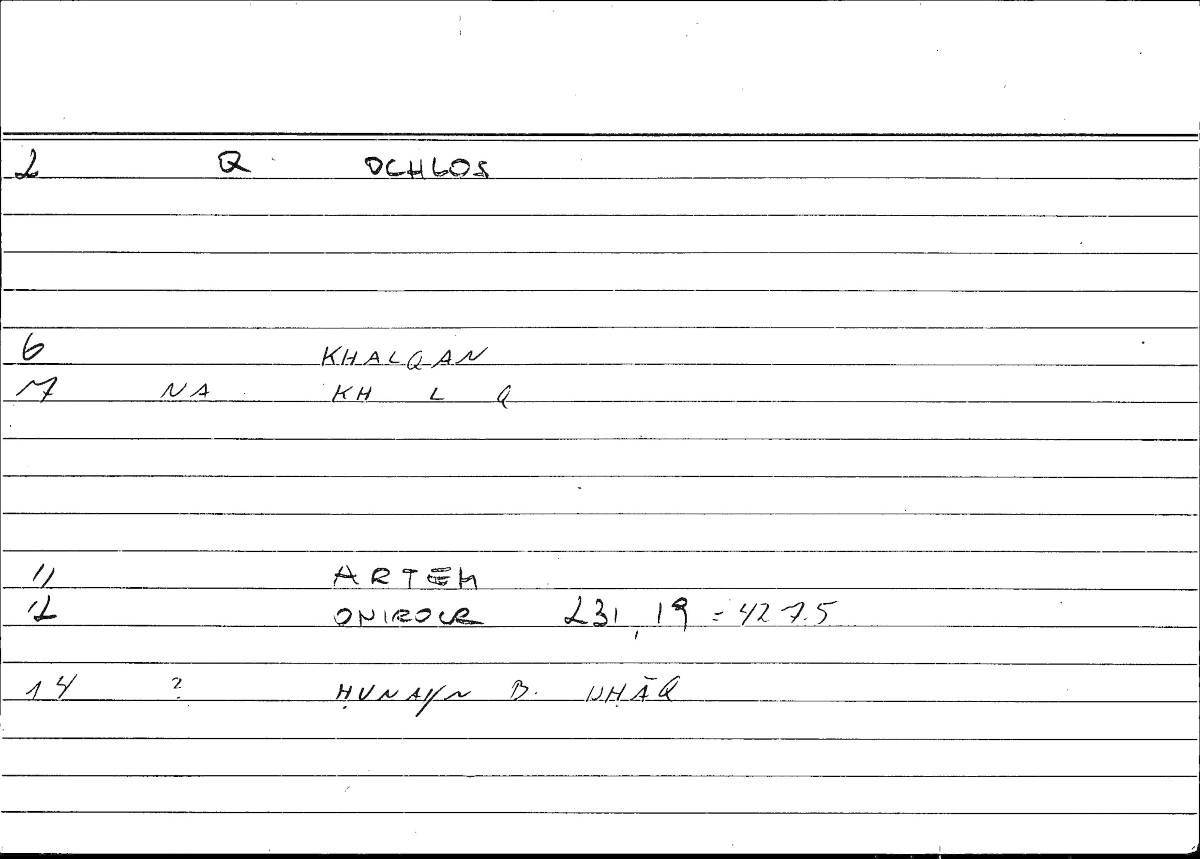 2 Q OCHLOS
6 KHALQAN
7 NA KH L Q
11 ARTEM
12 ONIROCR 231,19 = 427.5
14 ? ḤUNAYN B. ISḤĀQ